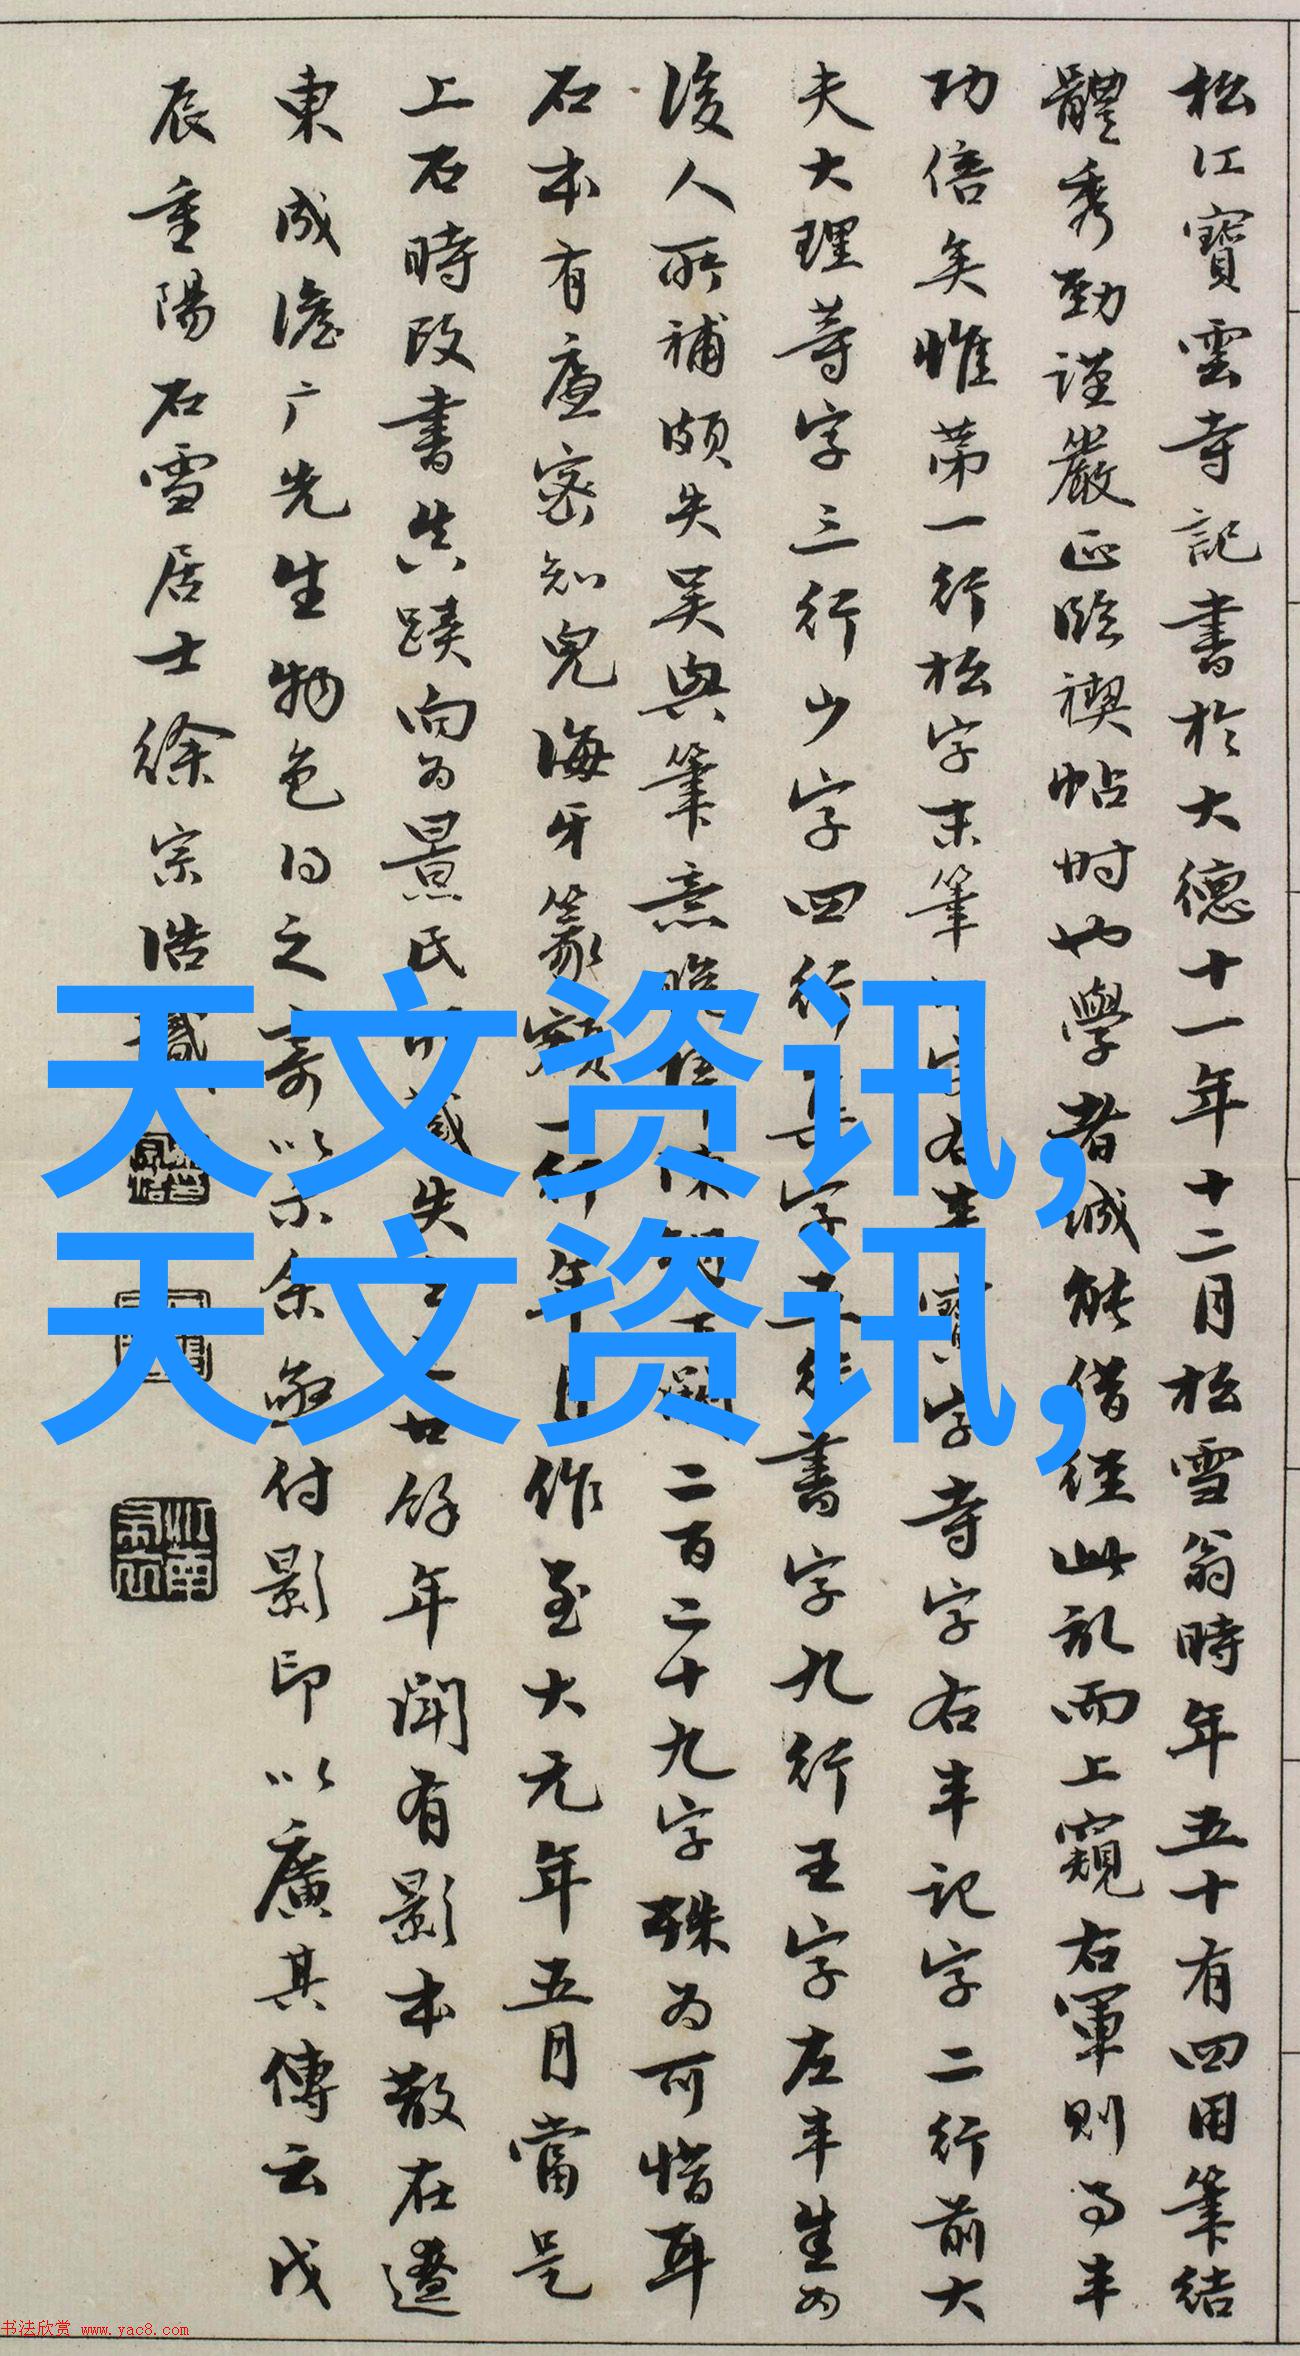 松江寶雲寺記書於大德十一年十二月松雪翁時年五十有四用筆結
體秀勁謹嚴正臨禊帖時也學者誠能借徑此記而上窺右軍則事半
功倍矣惟第一行松字末筆字右半寶字寺字右半記字二行前大
夫大理等字三行少字四行字五行書字九行王字左半生如
後人所補頗失吳興筆意二百二十九字殊為可惜耳
石本有廬密知兒海牙篆額一行年月作至大元年五月當是
上石時改書真蹟向為景氏藏失廿餘年聞有影本散在遼
東成澹广先生物色得之寄以示余亟付影印以廣其傳云戊
辰重陽石雪居士徐宗浩
天文资讯,
天文资讯,
书法欣赏 www.yac8.com